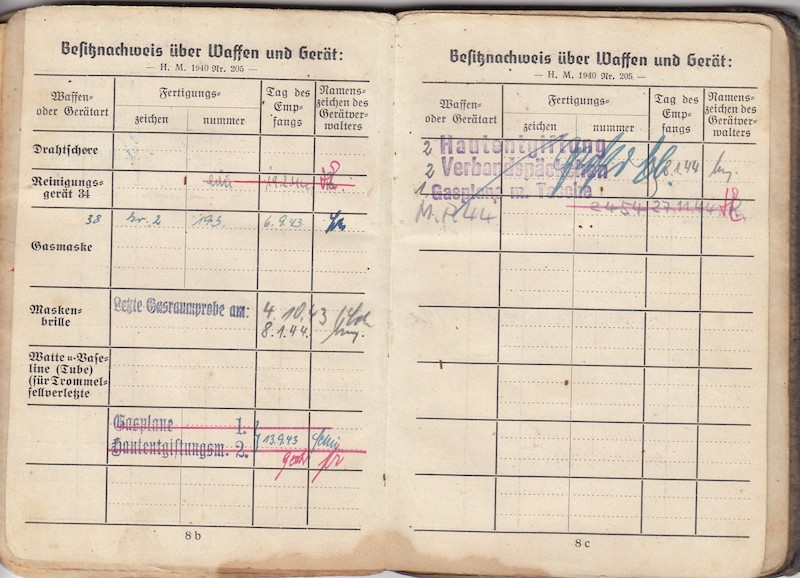 Besitznachweis über Waffen und Gerät:
— H. M. 1940 Nr. 205 —
Waffen- oder Gerätart
Fertigungs-
zeichen
nummer
Tag des Emp- fangs
Namens- zeichen des Gerätver- walters
Drahtschere
Reinigungs-
gerät 34
38 2 195 6.9.43
Gasmaske
Masken-
brille
Letzte Gasraumprobe am: 4.10.43
8.1.44.
Watte u. Vase-
line (Tube)
(für Trommel-
fellverletzte
Gasplane 1.
Hautentgiftungsm. 2. 13.9.43
8 b
Besitznachweis über Waffen und Gerät:
— H. M. 1940 Nr. 205 —
Waffen- oder Gerätart
Fertigungs-
zeichen
nummer
Tag des Emp- fangs
Namens- zeichen des Gerätver- walters
2 Hautentgiftung
2 Verbandspäckchen 8.1.44
1 Gasplane m. Tasche
M.P.44 2454 27.11.44
8 c